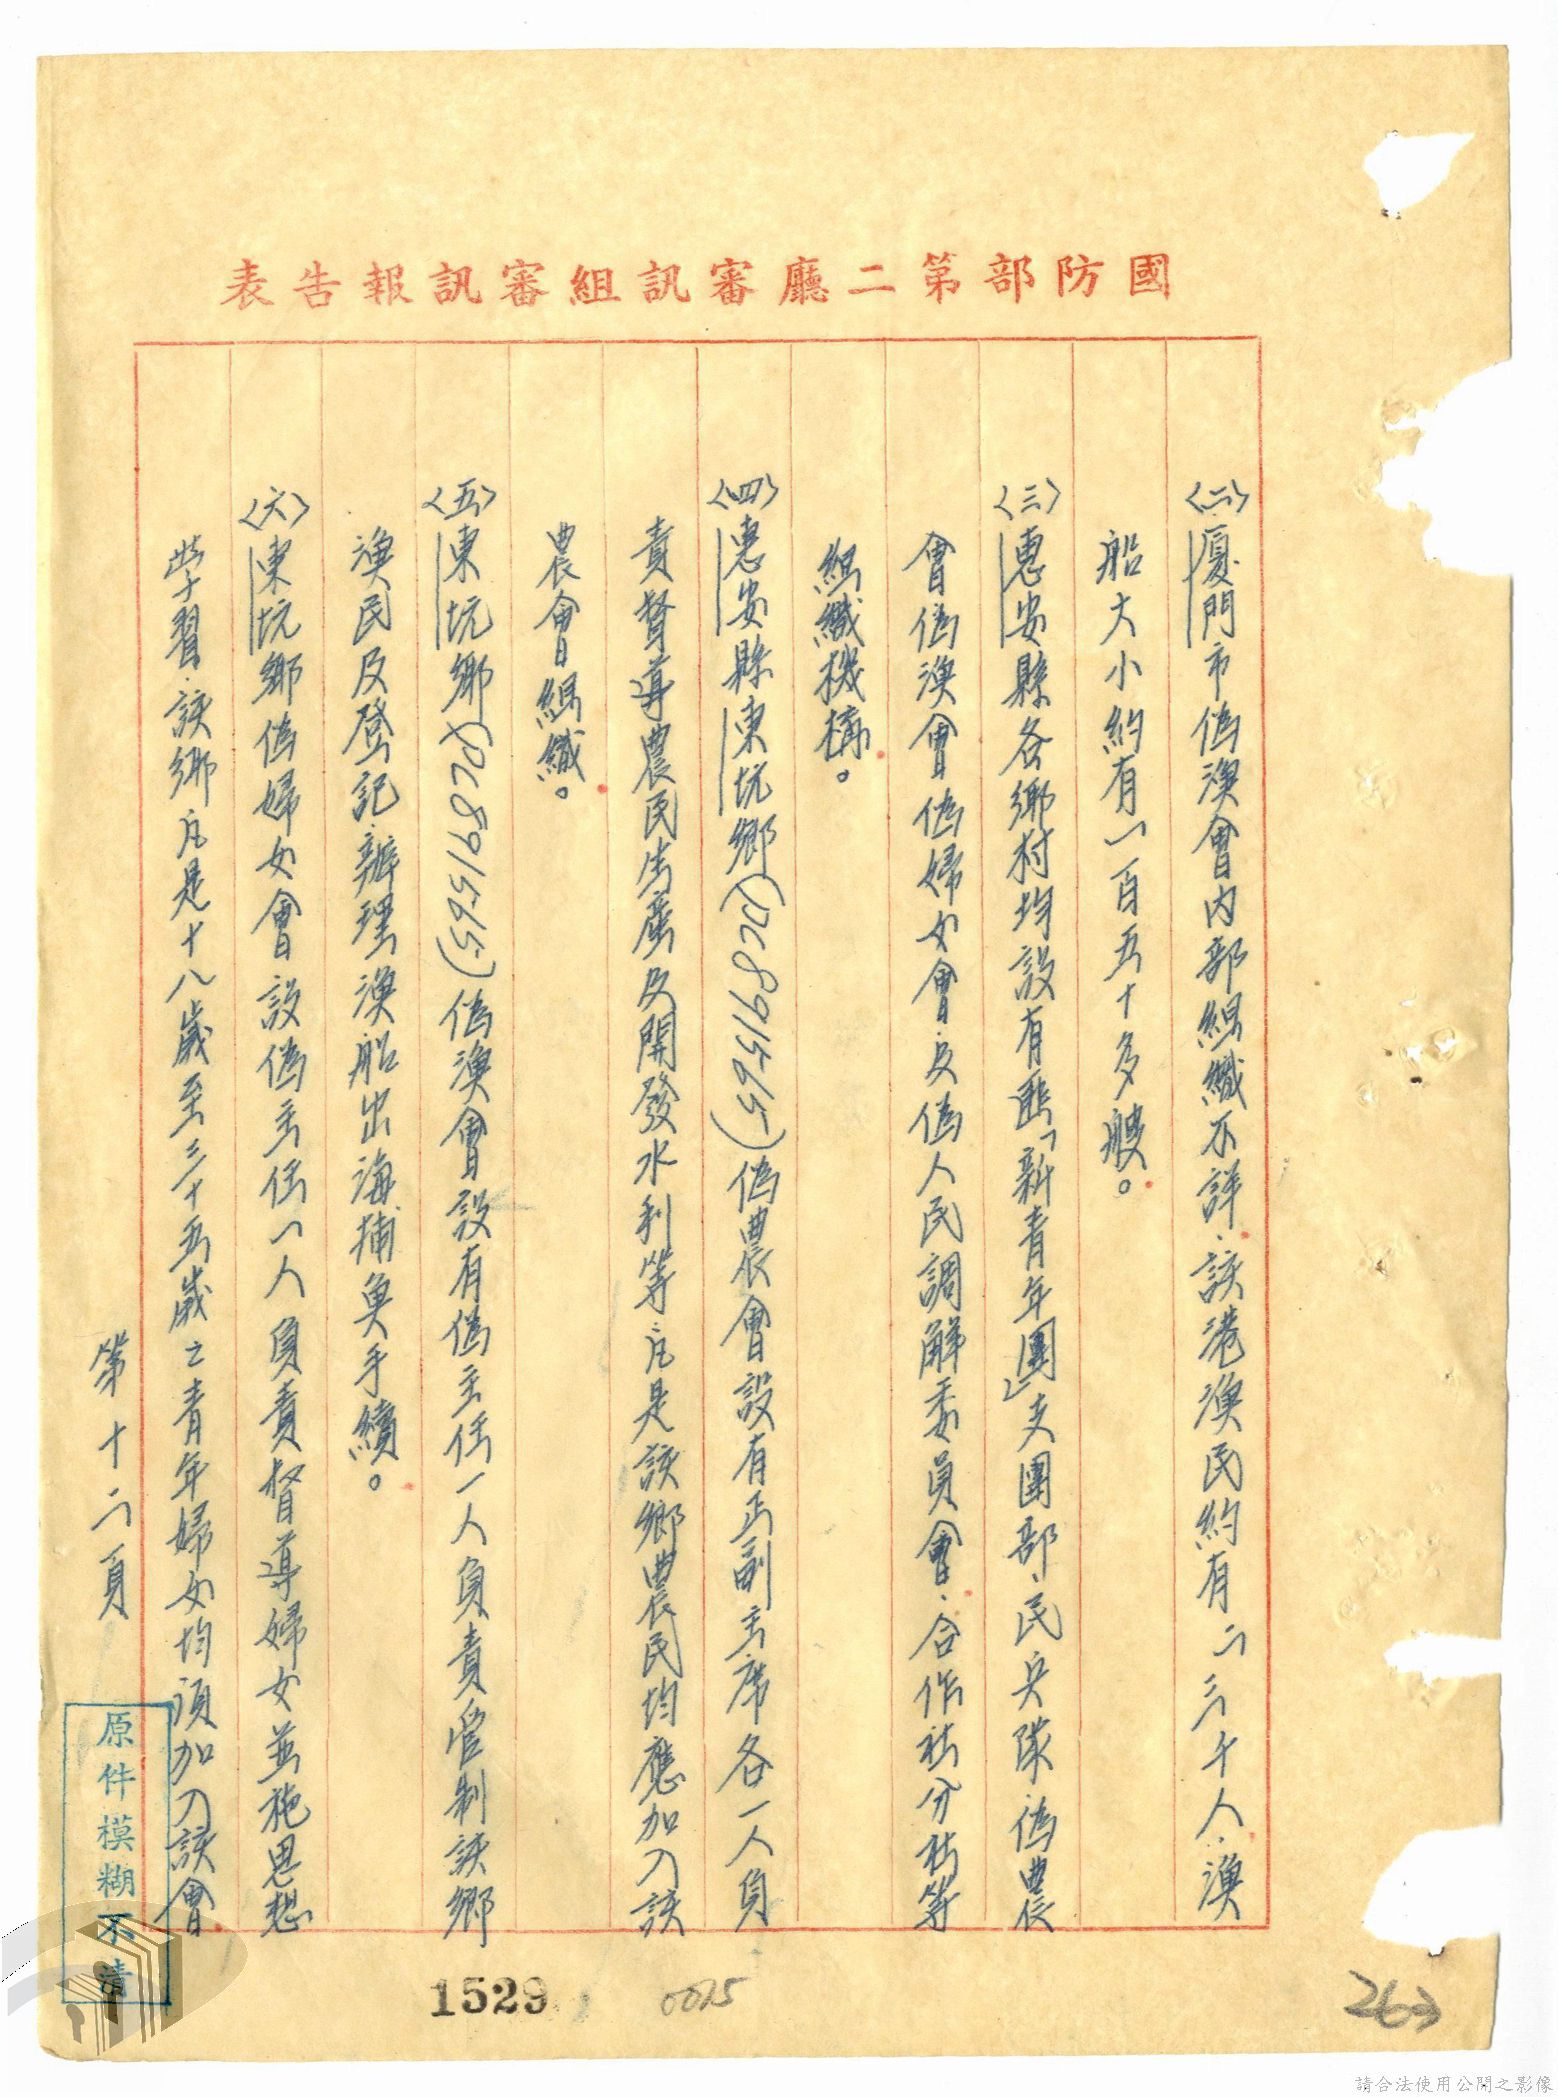 國防部第二廳審訊組審訊報告表
〈二〉廈門市偽漁會內部組織不詳、該港漁民約有二三千人、漁
船大小約有一百五十多艘。
〈三〉惠安縣各鄉村均設有匪「新青年團」支團部、民兵隊、偽農
會偽漁會偽婦女會、及偽人民調解委員會、合作社分社等
組織機構。
〈四〉惠安縣東坑鄉(PC891565)偽農會設有正副主席各一人負
責督導農民生產及開發水利等、凡是該鄉農民均應加入該
農會組織。
〈五〉東坑鄉(PC891565)偽漁會設有偽主任一人負責管制該鄉
漁民及登記、辦理漁船出海捕魚手續。
〈六〉東坑鄉偽婦女會設偽主任一人負責督導婦女並施思想
學習、該鄉凡是十八歲至三十五歲之青年婦女均須加入該會
第十二頁
原件模糊不清
1529
0025
263
請合法使用公開之影像